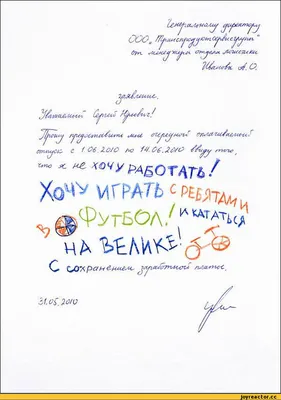 Генеральному директору
ООО "Транспродуктсервисгрупп"
от менеджера отдела логистики
Иванова А.О.
заявление.
Уважаемый Сергей Юрьевич!
Прошу предоставить мне очередной оплачиваемый
отпуск с 1.06.2010 по 14.06.2010 ввиду того,
что я не ХОЧУ РАБОТАТЬ!
ХОЧУ ИГРАТЬ С РЕБЯТАМИ
В ФУТБОЛ! И КАТАТЬСЯ
НА ВЕЛИКЕ!
С сохранением заработной платы.
31.05.2010
joyreactor.cc